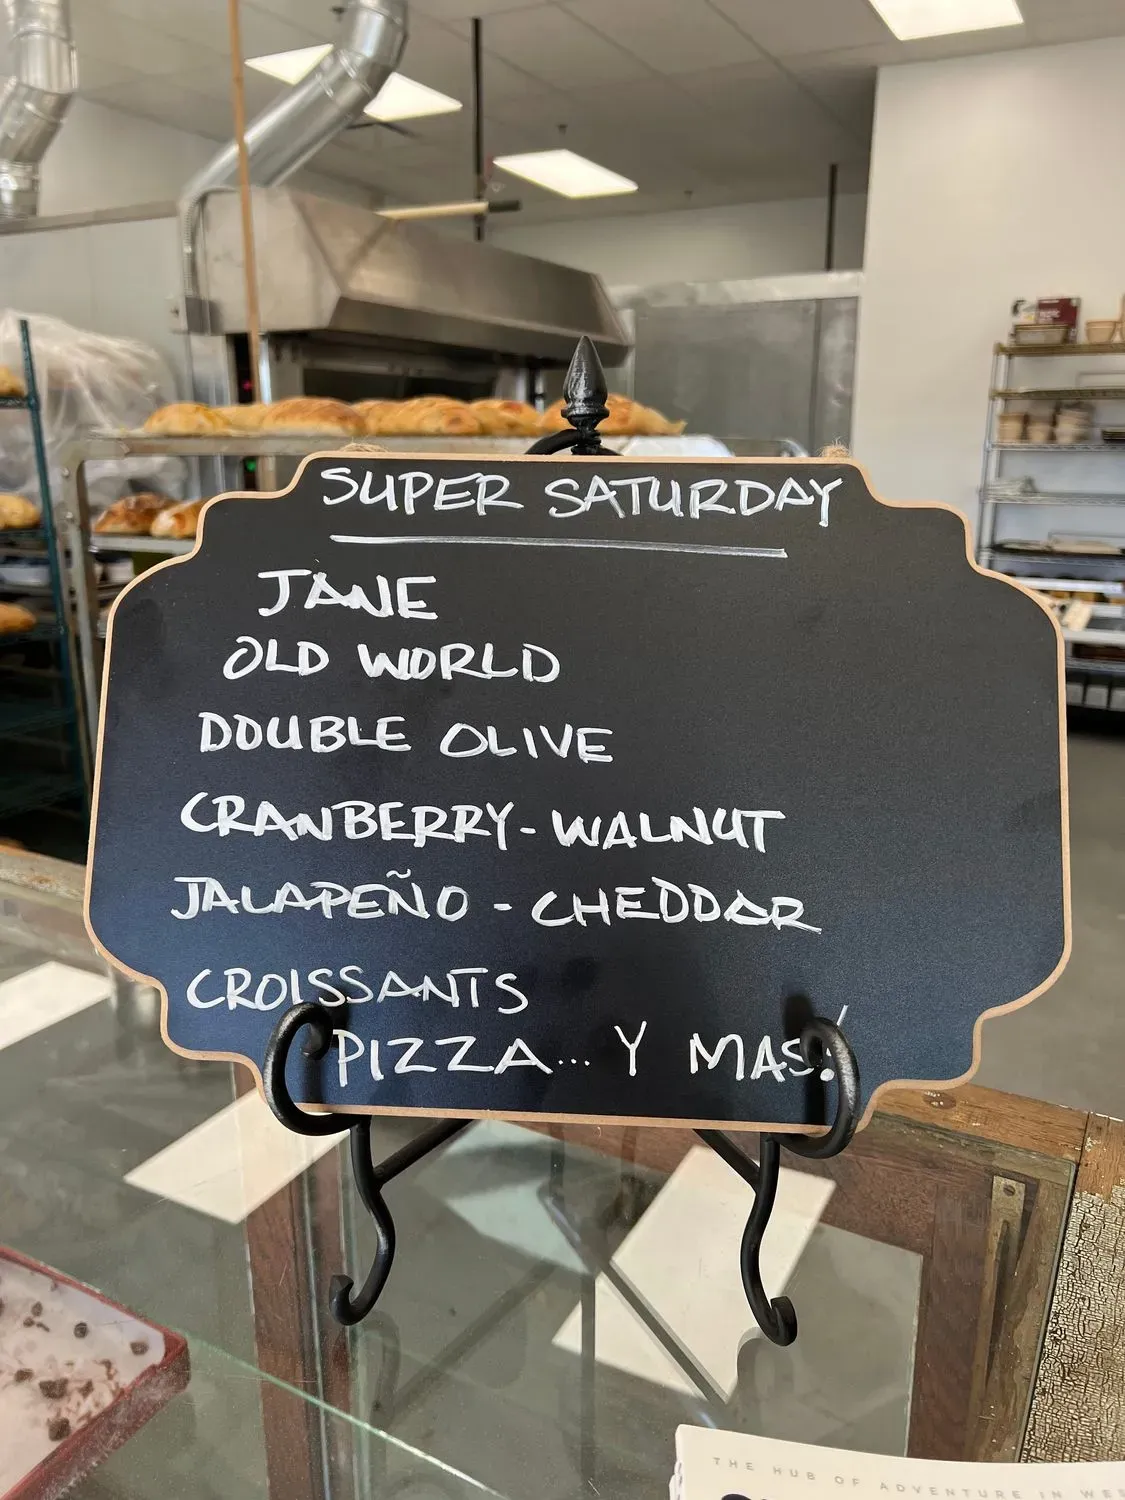 SUPER SATURDAY
JANE
OLD WORLD
DOUBLE OLIVE
CRANBERRY-WALNUT
JALAPEÑO - CHEDDAR
CROISSANTS
PIZZA... Y MAS!
THE HUB OF ADVENTURE IN